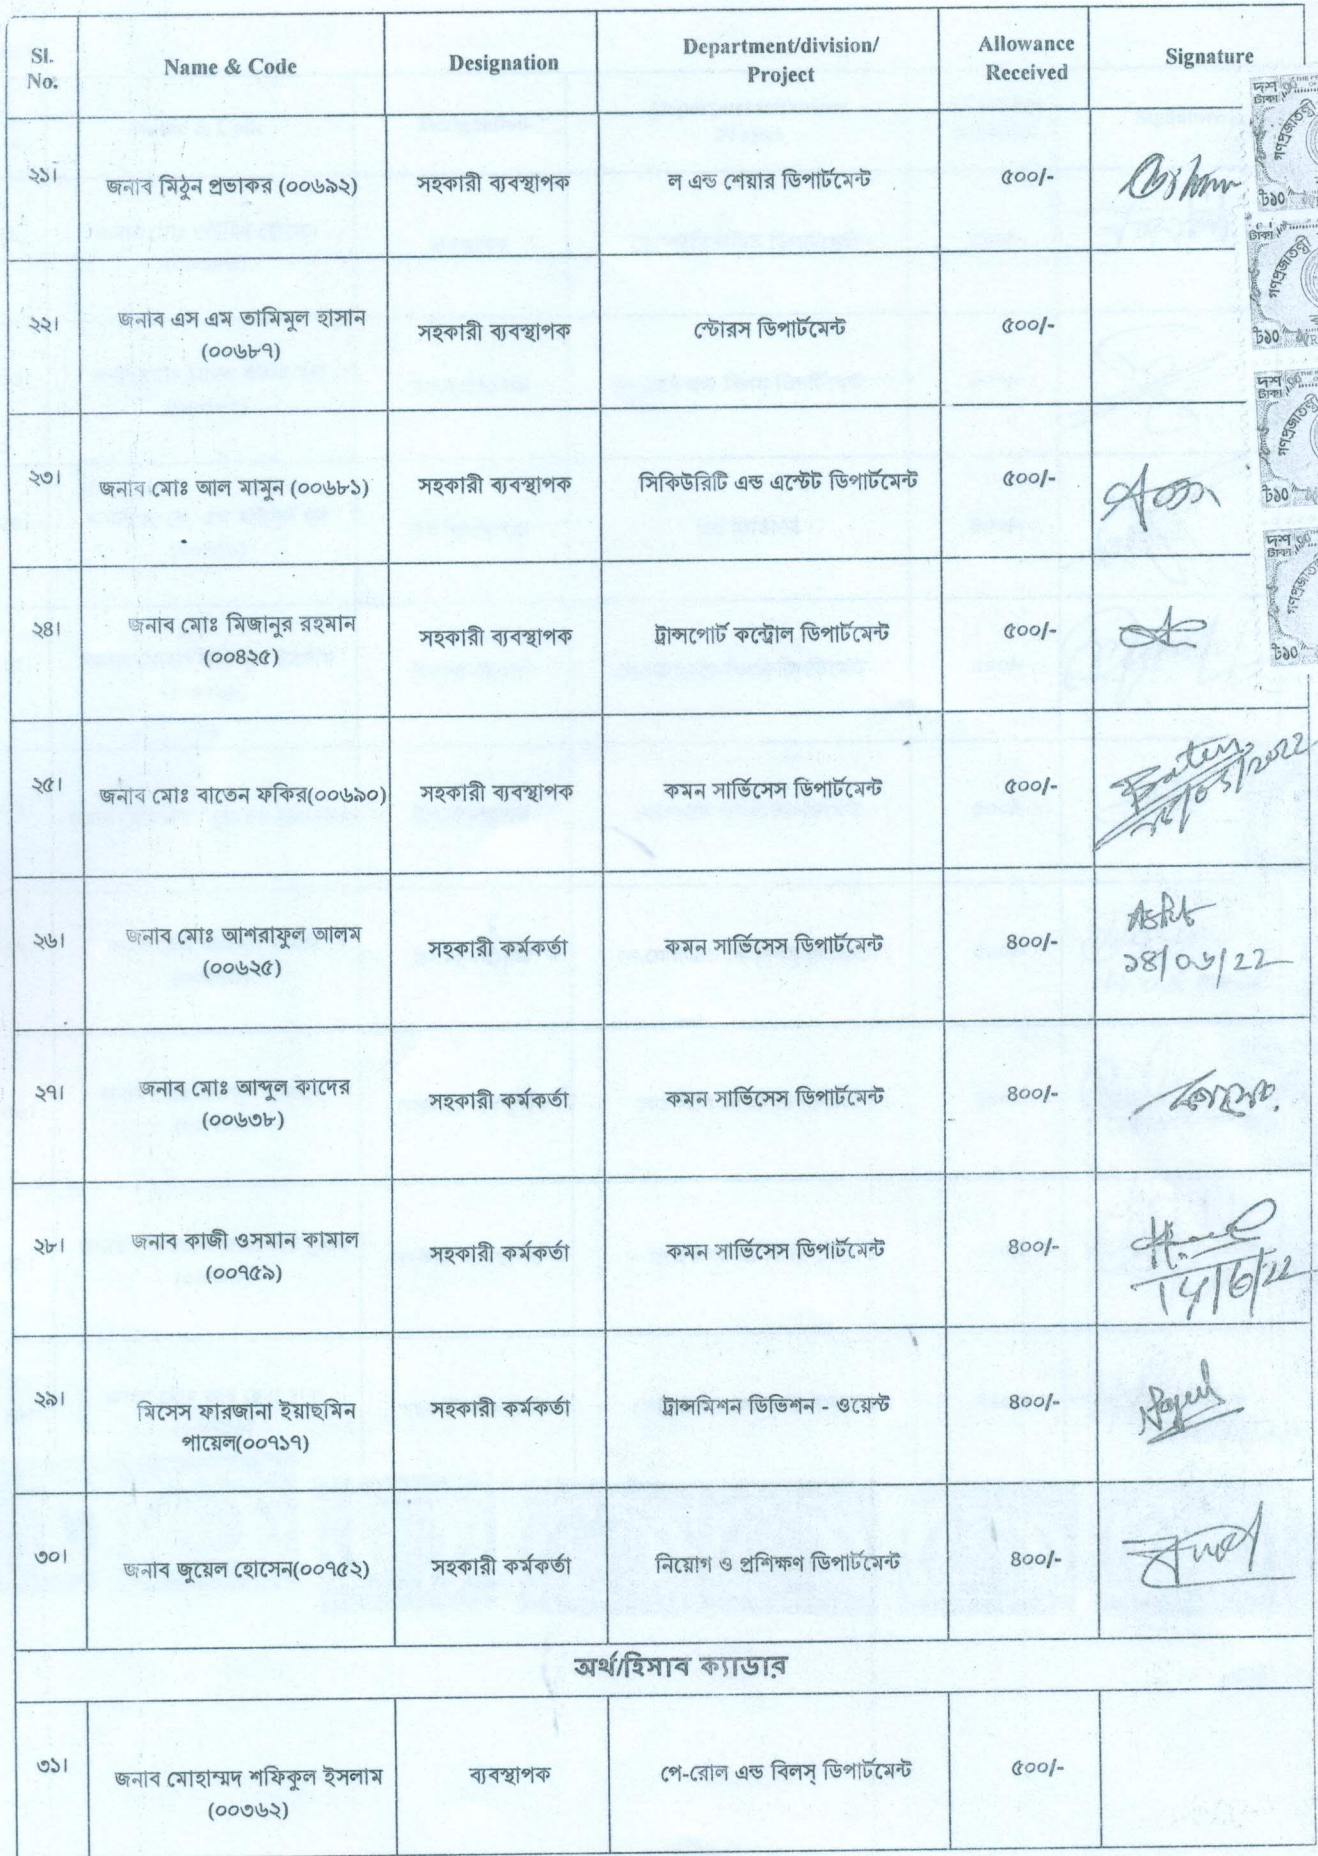 Sl. No. Name & Code Designation Department/division/ Project Allowance Received Signature
২১। জনাব মিঠুন প্রভাকর (০০৬৯২) সহকারী ব্যবস্থাপক ল এন্ড শেয়ার ডিপার্টমেন্ট ৫০০/-
২২। জনাব এস এম তামিমুল হাসান (০০৬৮৭) সহকারী ব্যবস্থাপক স্টোরস ডিপার্টমেন্ট ৫০০/-
২৩। জনাব মোঃ আল মামুন (০০৬৮১) সহকারী ব্যবস্থাপক সিকিউরিটি এন্ড এস্টেট ডিপার্টমেন্ট ৫০০/-
২৪। জনাব মোঃ মিজানুর রহমান (০০৪২৫) সহকারী ব্যবস্থাপক ট্রান্সপোর্ট কন্ট্রোল ডিপার্টমেন্ট ৫০০/-
২৫। জনাব মোঃ বাতেন ফকির(০০৬৯০) সহকারী ব্যবস্থাপক কমন সার্ভিসেস ডিপার্টমেন্ট ৫০০/- Baten
২৬। জনাব মোঃ আশরাফুল আলম (০০৬২৫) সহকারী কর্মকর্তা কমন সার্ভিসেস ডিপার্টমেন্ট ৪০০/- ১৪/০৬/22
২৭। জনাব মোঃ আব্দুল কাদের (০০৬৩৮) সহকারী কর্মকর্তা কমন সার্ভিসেস ডিপার্টমেন্ট ৪০০/-
২৮। জনাব কাজী ওসমান কামাল (০০৭৫৯) সহকারী কর্মকর্তা কমন সার্ভিসেস ডিপার্টমেন্ট ৪০০/- 14/6/22
২৯। মিসেস ফারজানা ইয়াছমিন পায়েল(০০৭১৭) সহকারী কর্মকর্তা ট্রান্সমিশন ডিভিশন - ওয়েস্ট ৪০০/-
৩০। জনাব জুয়েল হোসেন(০০৭৫২) সহকারী কর্মকর্তা নিয়োগ ও প্রশিক্ষণ ডিপার্টমেন্ট ৪০০/-
অর্থ/হিসাব ক্যাডার
৩১। জনাব মোহাম্মদ শফিকুল ইসলাম (০০৩৬২) ব্যবস্থাপক পে-রোল এন্ড বিলস্ ডিপার্টমেন্ট ৫০০/-
দশ টাকা
গণপ্রজাতন্ত্রী
৳১০
টাকা
গণপ্রজাতন্ত্রী
৳১০
দশ টাকা
গণপ্রজাতন্ত্রী
৳১০
দশ টাকা
৳১০